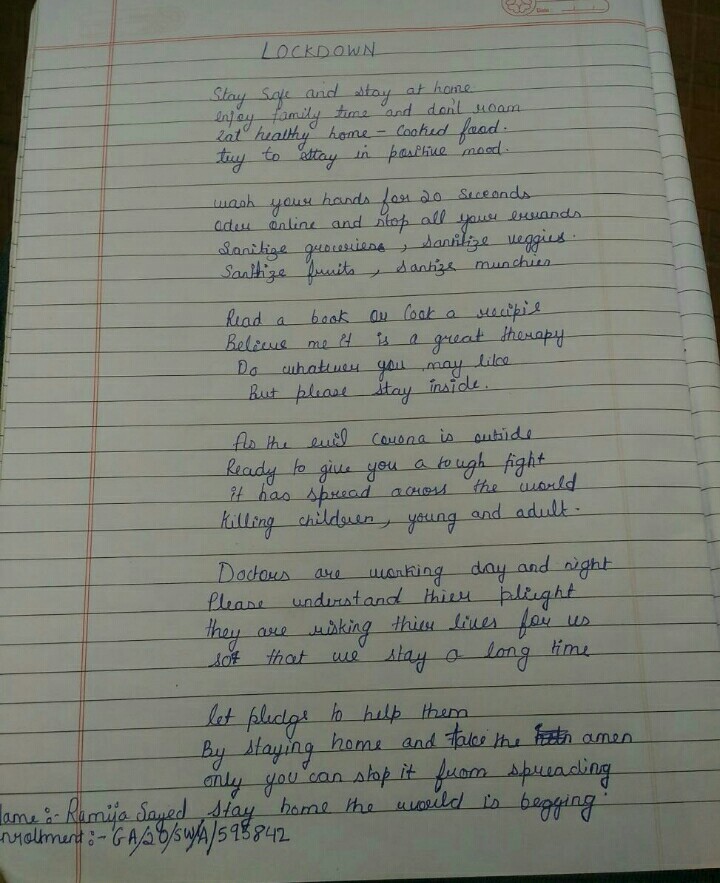 Date:
LOCKDOWN
Stay safe and stay at home
enjoy family time and don't roam
eat healthy home - cooked food.
try to stay in positive mood.
wash your hands for 20 seceonds
oder online and stop all your errands
Sanitize groceriess, sanitize veggies.
Santtize fruits, santize munchies
Read a book or Cook a recipie
Believe me it is a great therapy
Do whatever you may like
But please stay inside.
As the evil corona is outside
Ready to give you a tough fight
it has spread across the world
killing children, young and adult.
Doctors are working day and night
Please understand thier plieght
they are risking thier lives for us
so that we stay a long time
let pledge to help them
By staying home and take the amen
only you can stop it from spreading
stay home the world is begging
ame:- Ramija Sayed
nrollment:- GA/20/SWA/593842